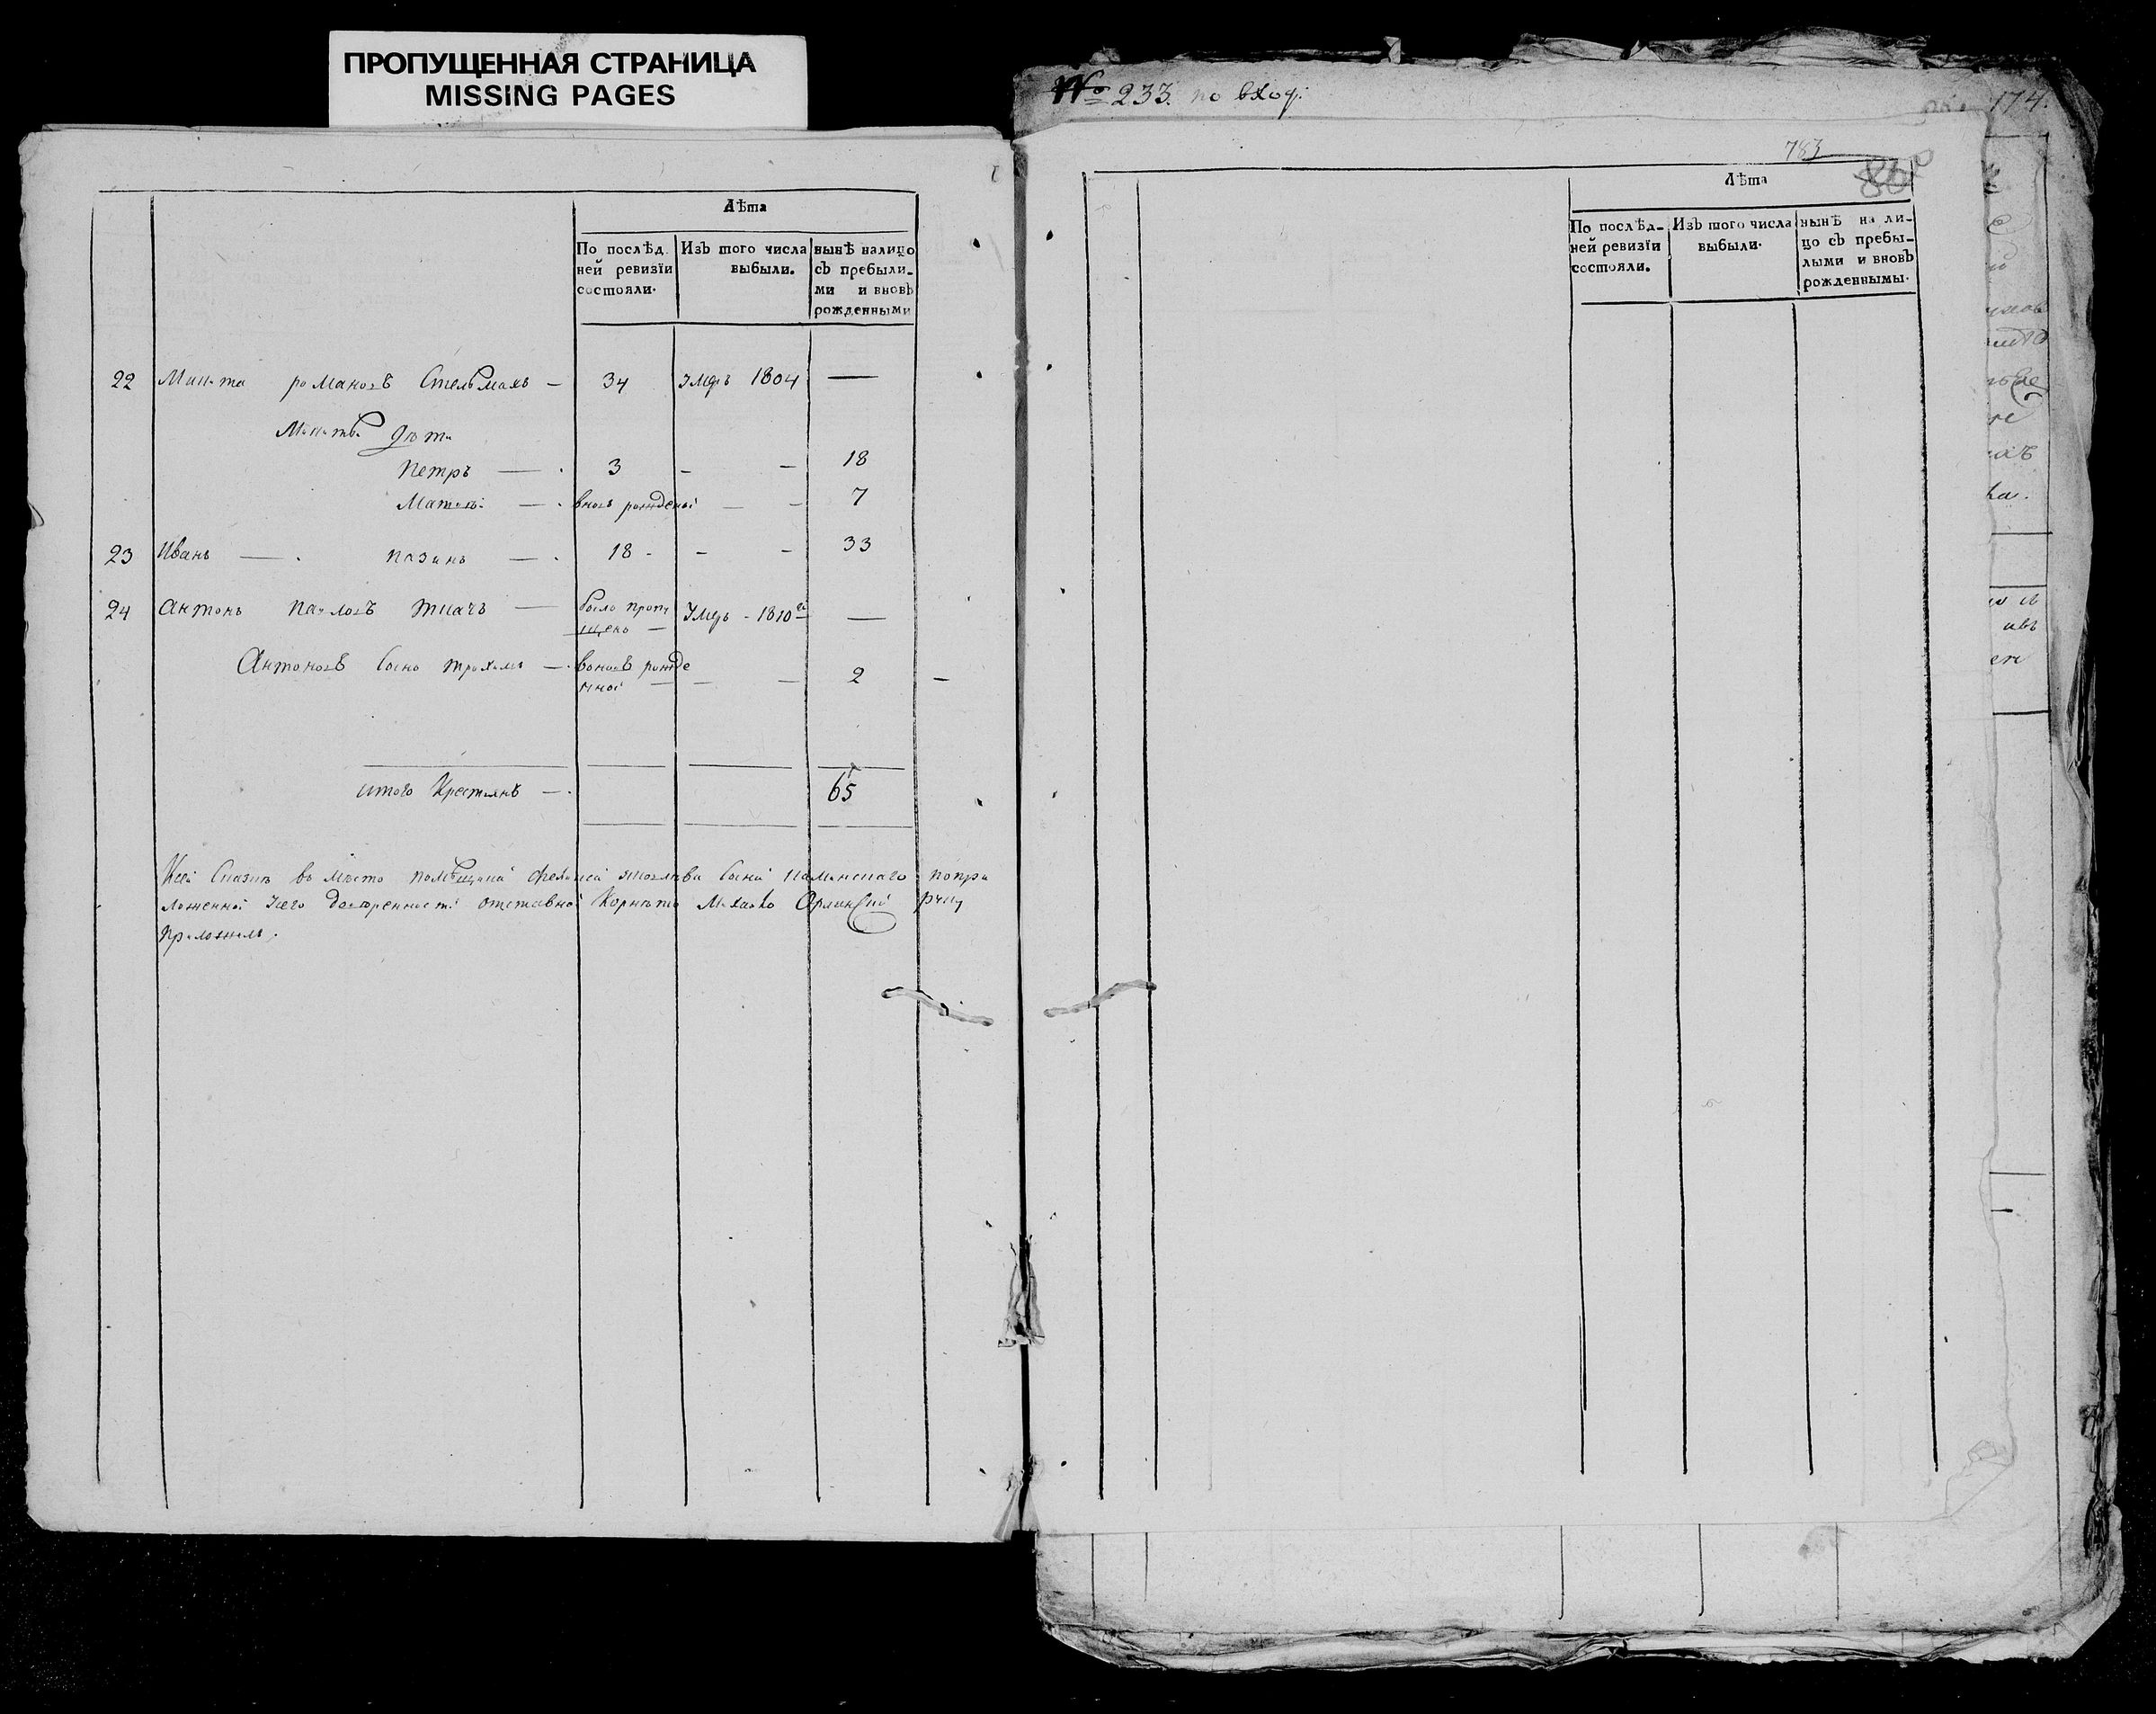 ПРОПУЩЕННАЯ СТРАНИЦА
MISSING PAGES
№ 233. по вход:
174.
783
Лѣта
По послѣд.
ней ревизїи
состояли.
Изъ того числа
выбыли.
нынѣ налицо
съ пребыли-
ми и вновь
рожденными
22 Микита романовъ Стельмахъ — 34 Умеръ 1804 —
Микиты дѣти
Петръ — 3 - - 18
Матвѣй — вновь рожденый — - 7
23 Иванъ — Казанъ — 18 - - - 33
24 Антонъ Павловъ Ткачъ — было пропу Умеръ - 1810 —
щенъ —
Антоновъ сынъ трохимъ — вновь рожде
нной — — — 2 —
итого Крестьянъ — 65
Ксей Сказкѣ въ мѣсто помѣщика сына Каминскаго попри
ложенной его доверенности отставной Корнетъ Орлинский руку
приложилъ.
Лѣта
По послѣд-
ней ревизїи
состояли.
Изъ того числа
выбыли.
нынѣ на ли-
цо съ пребы-
лыми и вновь
рожденнымы.